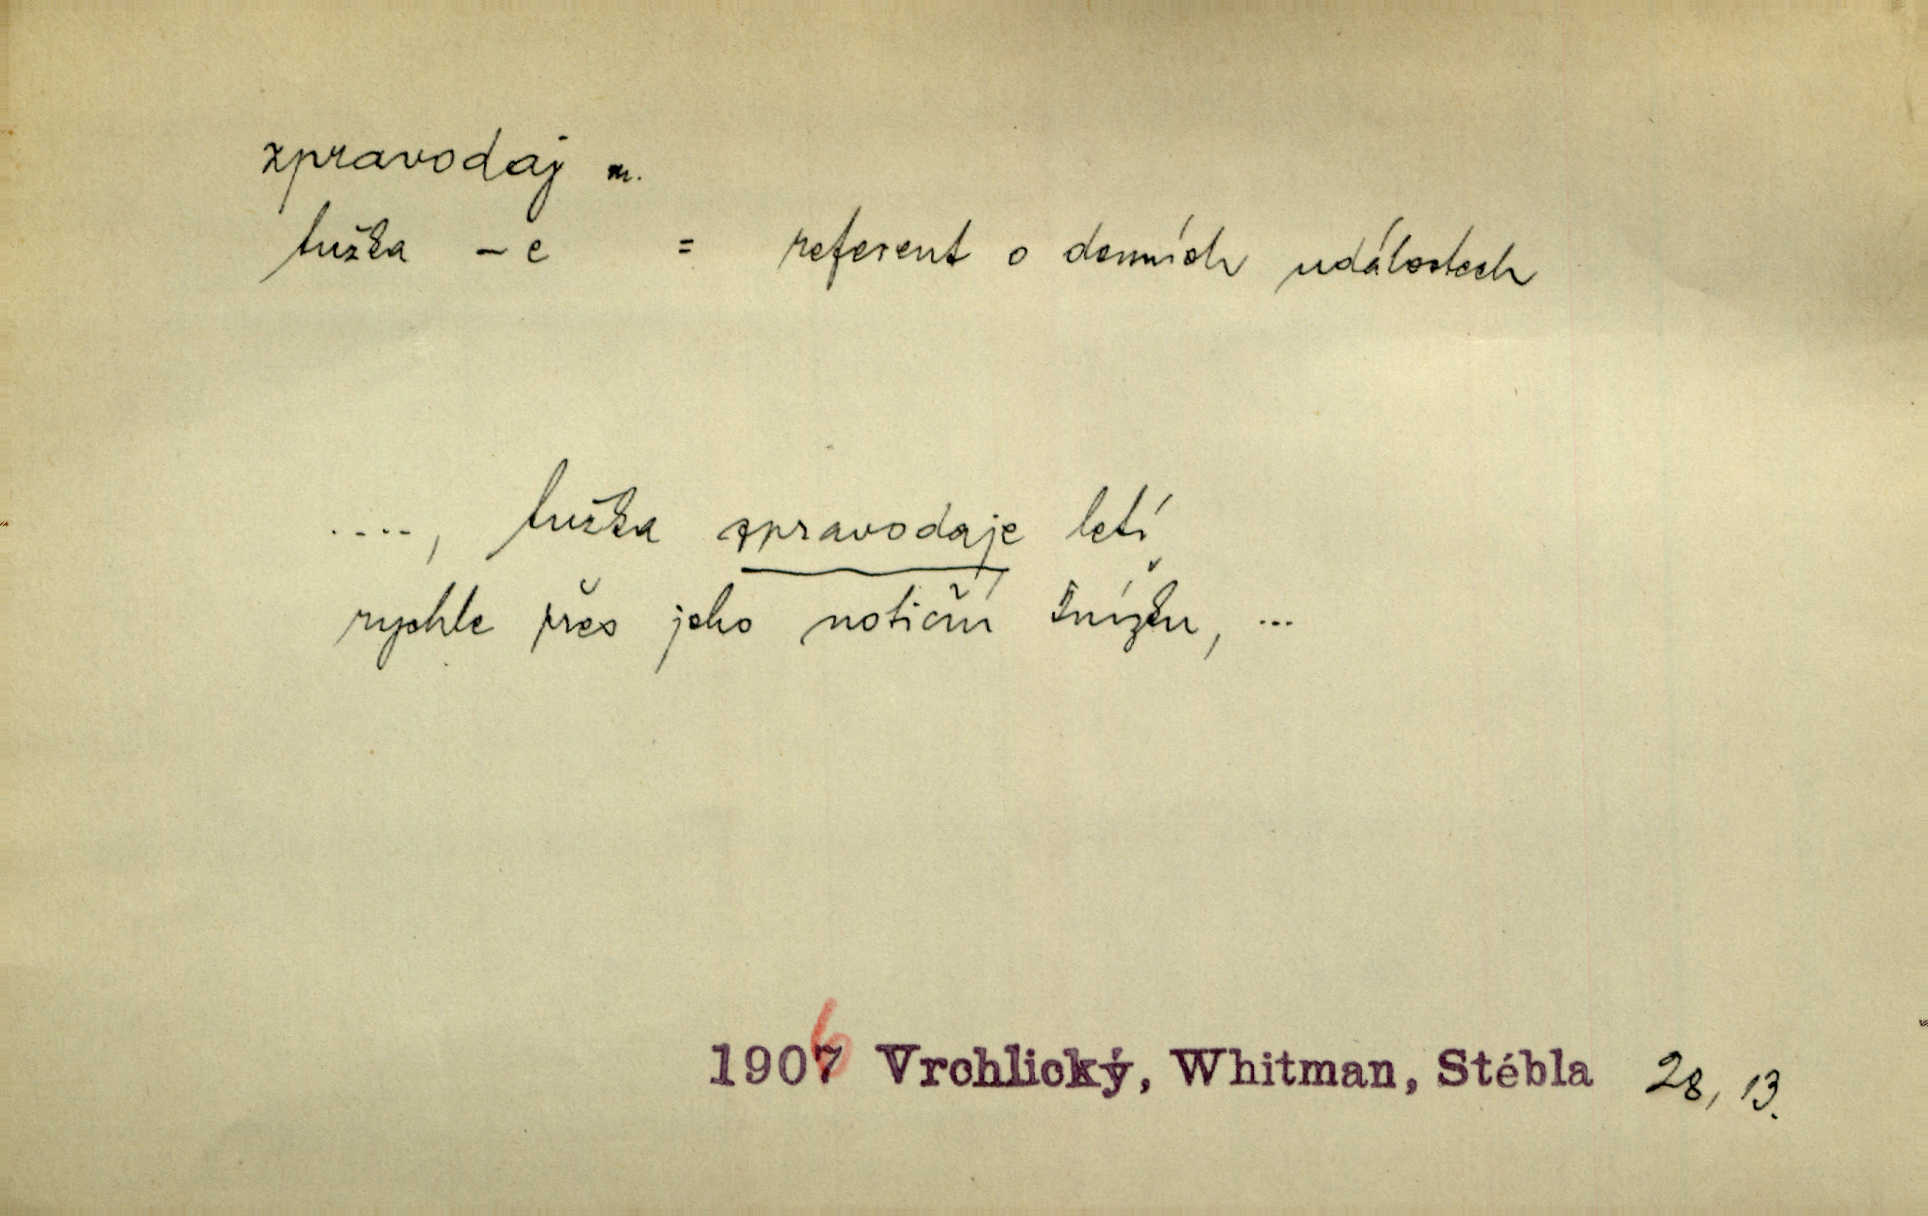 zpravodaj m.
tužka – e = referent o denních událostech
...., tužka zpravodaje letí
rychle přes jeho notiční knížku, ...
1906 Vrchlický, Whitman, Stébla 28, 13.